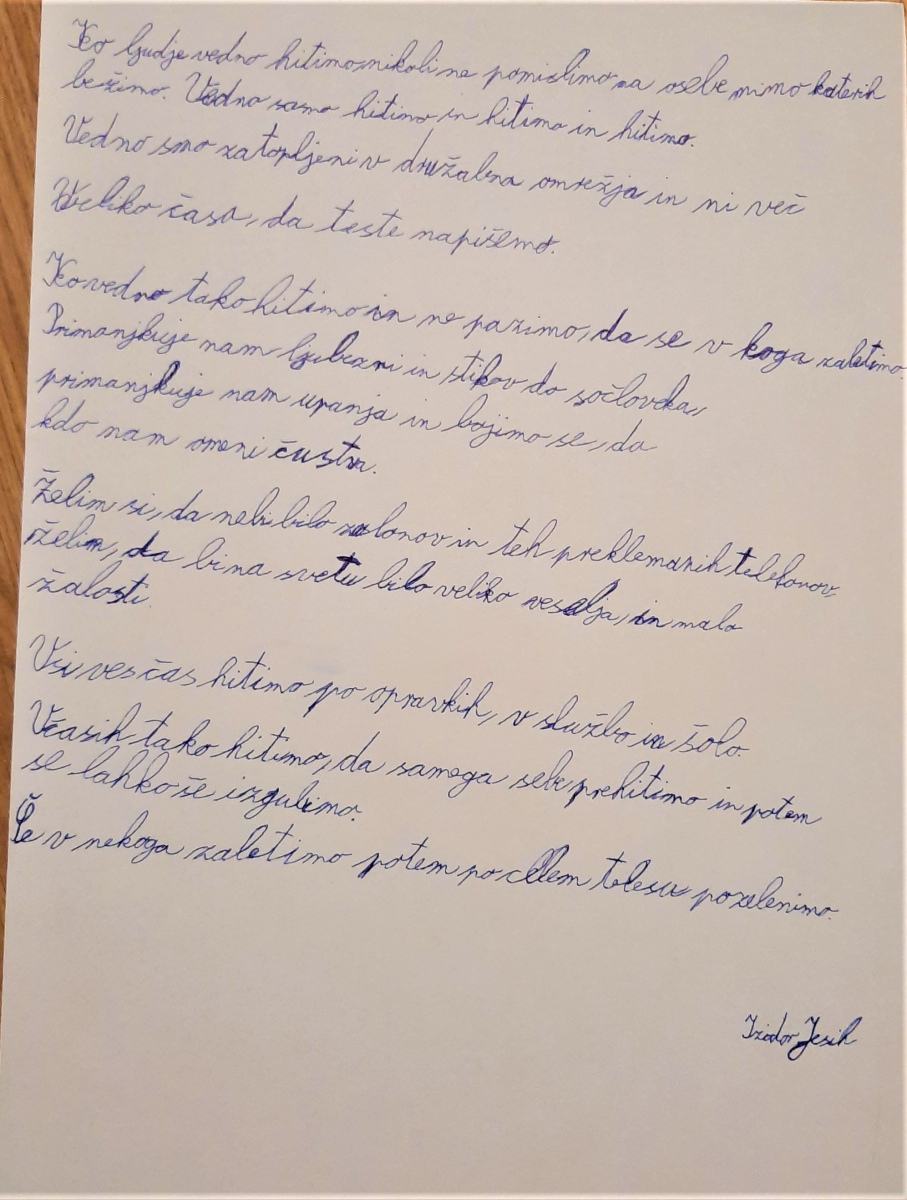 Ko ljudje vedno hitimo, nikoli ne pomislimo na osebe mimo katerih
bežimo. Vedno samo hitimo in hitimo in hitimo.
Vedno smo zatopljeni v družabna omrežja in ni več
Veliko časa, da teste napišemo.
Ko vedno tako hitimo in ne pazimo, da se v koga zaletimo.
Primanjkuje nam ljubezni in stikov do sočloveka,
primanjkuje nam upanja in bojimo se, da
kdo nam omeni čustva.
Želim si, da nebi bilo zaslonov in teh preklemanih telefonov,
želim, da bi na svetu bilo veliko veselja, in malo
žalosti.
Vsi ves čas hitimo po opravkih, v službo in šolo.
Včasih tako hitimo, da samega sebe prehitimo in potem
se lahko še izgubimo.
Če v nekoga zaletimo potem po celem telesu pozelenimo.
Izidor Jesih